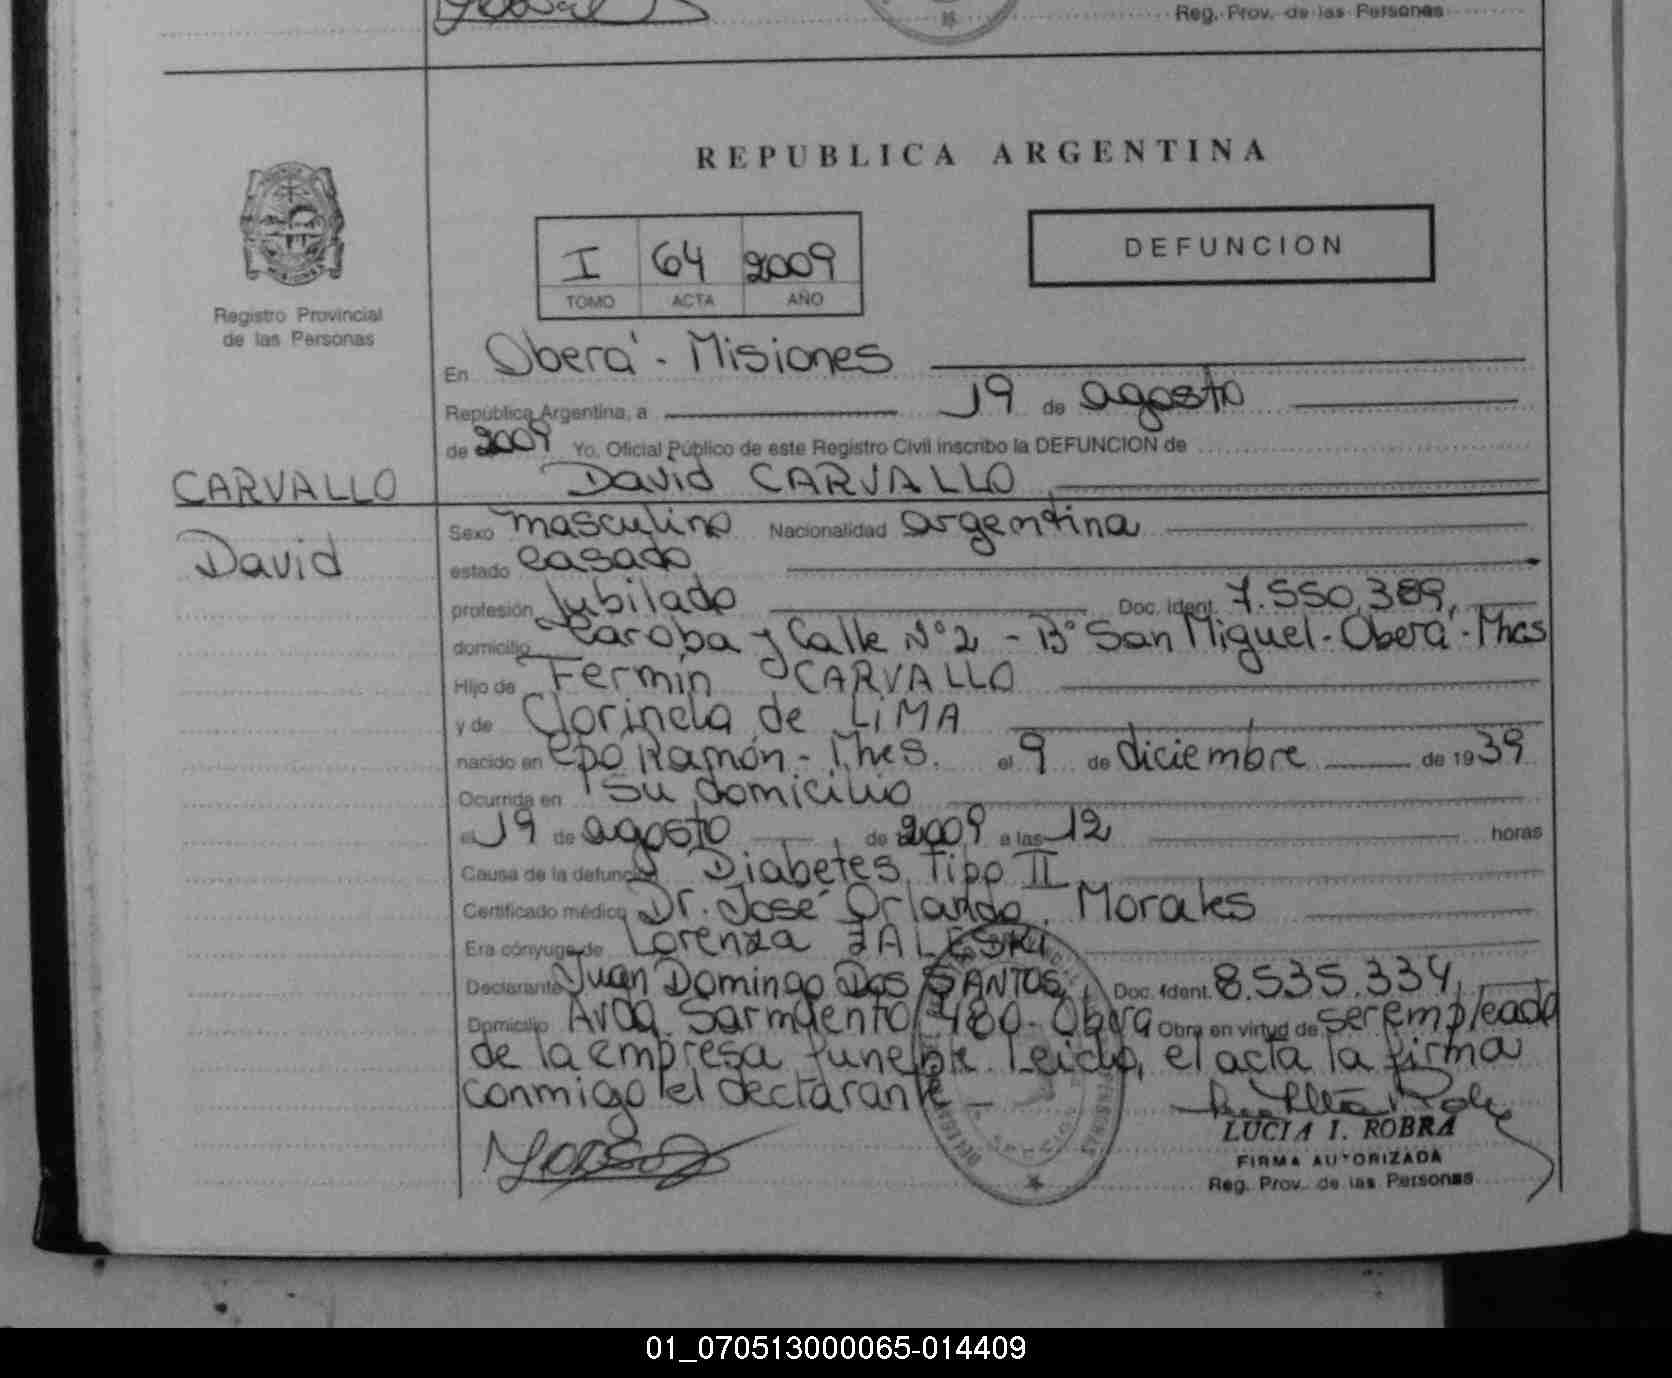 Reg. Prov. de las Personas
REPUBLICA ARGENTINA
I 64 2009
TOMO ACTA AÑO
DEFUNCION
Registro Provincial
de las Personas
En Oberá - Misiones
República Argentina, a 19 de agosto
de 2009 Yo, Oficial Público de este Registro Civil inscribo la DEFUNCION de
CARVALLO David CARVALLO
David
Sexo masculino Nacionalidad argentina
estado casado
profesión Jubilado Doc. Ident. 7.550.389,
domicilio Caroba y Calle Nº 2 - Bº San Miguel - Oberá - Mnes
Hijo de Fermín CARVALLO
y de Clorinda de LIMA
nacido en Cpo Ramón - Mnes. el 9 de diciembre de 1939
Ocurrida en su domicilio
el 19 de agosto de 2009 a las 12 horas
Causa de la defunción Diabetes Tipo II
Certificado médico Dr. José Orlando Morales
Era cónyuge de Lorenza ZALESKI
Declarante Juan Domingo Dos SANTOS, Doc. Ident. 8.535.334,
Domicilio Avda. Sarmiento 480 - Oberá Obra en virtud de ser empleado
de la empresa funebre. Leida, el acta la firma
conmigo el declarante -
LUCIA I. ROBRA
FIRMA AUTORIZADA
Reg. Prov. de las Personas
01_070513000065-014409